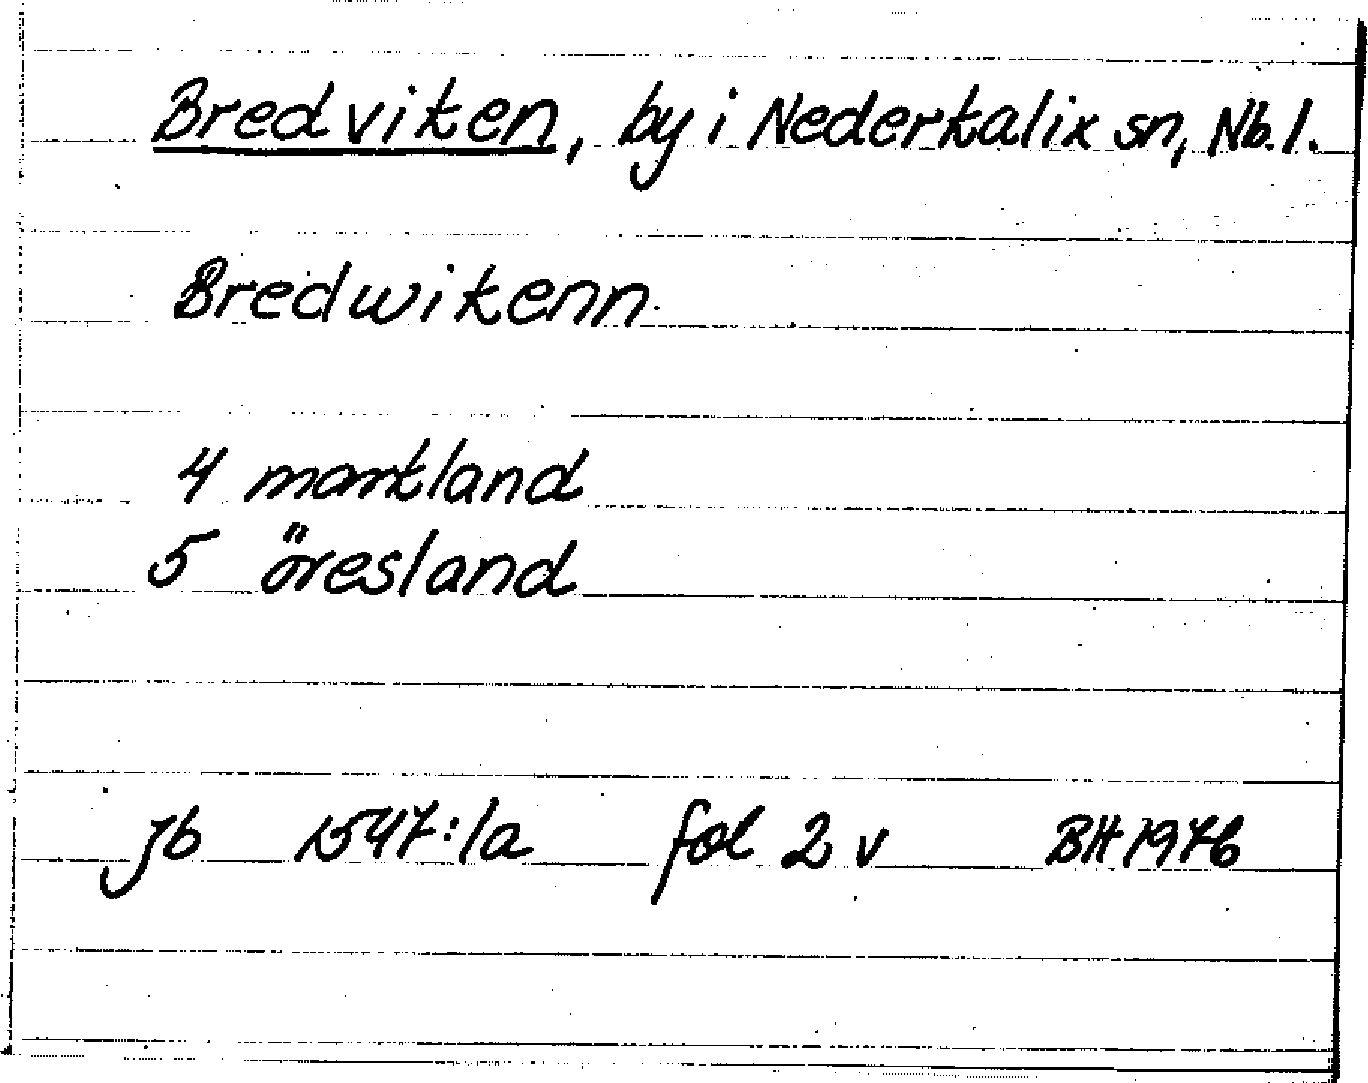 Bredviken, by i Nederkalix sn, Nb. l.
Bredwikenn
4 markland
5 öresland
jb 1547:1a fol 2 v BH 1976